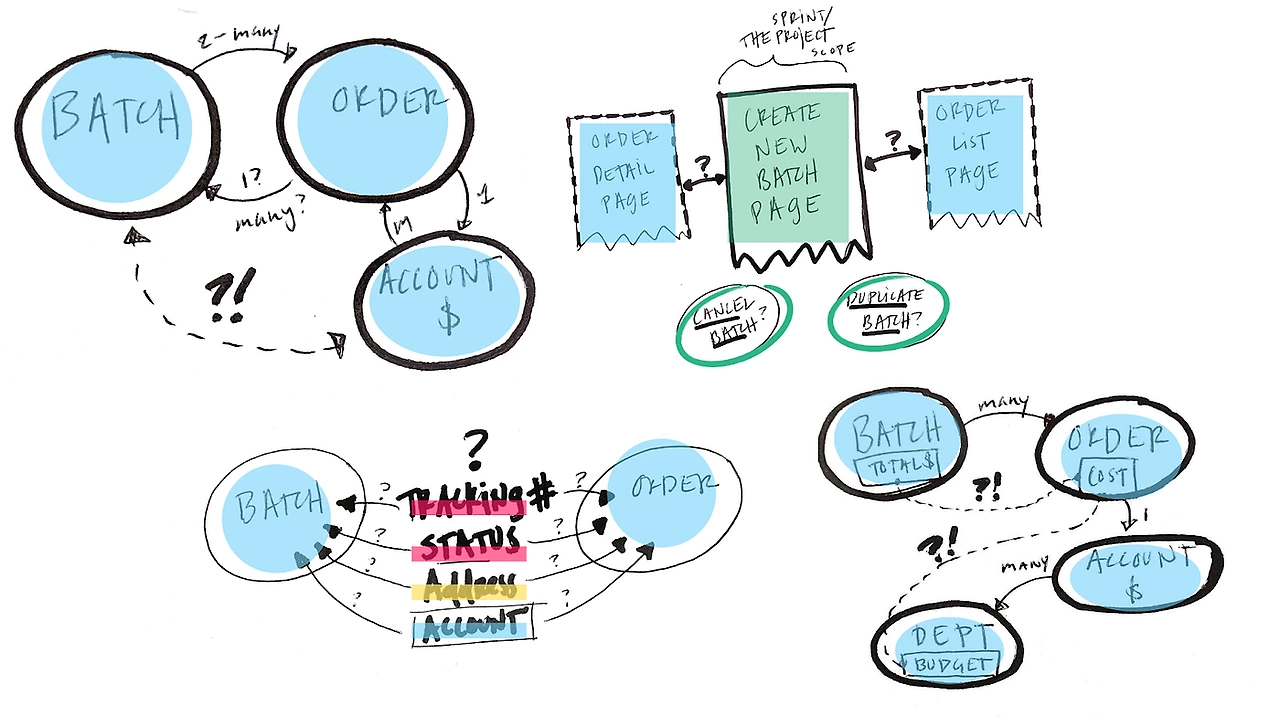 2-many
BATCH
ORDER
1?
many?
1
M
ACCOUNT
$
?!
SPRINT/
THE PROJECT
SCOPE
ORDER
DETAIL
PAGE
?
CREATE
NEW
BATCH
PAGE
?
ORDER
LIST
PAGE
CANCEL
BATCH?
DUPLICATE
BATCH?
?
BATCH
ORDER
? TRACKING# ?
? STATUS ?
? Address ?
? ACCOUNT ?
many
BATCH
TOTAL$
ORDER
COST
?!
?!
1
ACCOUNT
$
MANY
DEPT
BUDGET